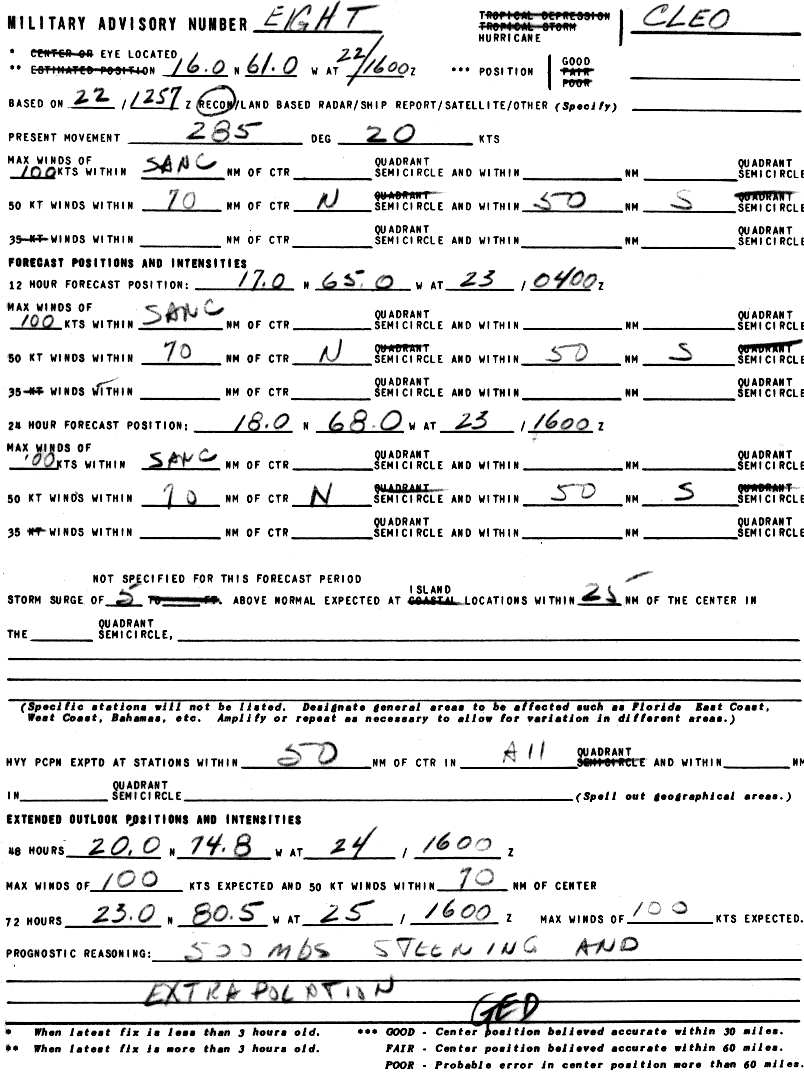 MILITARY ADVISORY NUMBER EIGHT TROPICAL DEPRESSION TROPICAL STORM HURRICANE CLEO
* CENTER OR EYE LOCATED
** ESTIMATED POSITION 16.0 N 61.0 W AT 22/1600 Z *** POSITION GOOD FAIR POOR
BASED ON 22 / 1257 Z RECON/LAND BASED RADAR/SHIP REPORT/SATELLITE/OTHER (Specify)
PRESENT MOVEMENT 285 DEG 20 KTS
MAX WINDS OF QUADRANT QUADRANT
100 KTS WITHIN SANC NM OF CTR SEMICIRCLE AND WITHIN NM SEMICIRCLE
QUADRANT QUADRANT
50 KT WINDS WITHIN 70 NM OF CTR N SEMICIRCLE AND WITHIN 50 NM S SEMICIRCLE
QUADRANT QUADRANT
35 KT WINDS WITHIN NM OF CTR SEMICIRCLE AND WITHIN NM SEMICIRCLE
FORECAST POSITIONS AND INTENSITIES
12 HOUR FORECAST POSITION: 17.0 N 65.0 W AT 23 / 0400 Z
MAX WINDS OF QUADRANT QUADRANT
100 KTS WITHIN SANC NM OF CTR SEMICIRCLE AND WITHIN NM SEMICIRCLE
QUADRANT QUADRANT
50 KT WINDS WITHIN 70 NM OF CTR N SEMICIRCLE AND WITHIN 50 NM S SEMICIRCLE
QUADRANT QUADRANT
35 KT WINDS WITHIN NM OF CTR SEMICIRCLE AND WITHIN NM SEMICIRCLE
24 HOUR FORECAST POSITION: 18.0 N 68.0 W AT 23 / 1600 Z
MAX WINDS OF QUADRANT QUADRANT
100 KTS WITHIN SANC NM OF CTR SEMICIRCLE AND WITHIN NM SEMICIRCLE
QUADRANT QUADRANT
50 KT WINDS WITHIN 70 NM OF CTR N SEMICIRCLE AND WITHIN 50 NM S SEMICIRCLE
QUADRANT QUADRANT
35 KT WINDS WITHIN NM OF CTR SEMICIRCLE AND WITHIN NM SEMICIRCLE
NOT SPECIFIED FOR THIS FORECAST PERIOD
STORM SURGE OF 5 TO FT. ABOVE NORMAL EXPECTED AT ISLAND COASTAL LOCATIONS WITHIN 25 NM OF THE CENTER IN
THE QUADRANT SEMICIRCLE,
(Specific stations will not be listed. Designate general areas to be affected such as Florida East Coast,
West Coast, Bahamas, etc. Amplify or repeat as necessary to allow for variation in different areas.)
HVY PCPN EXPTD AT STATIONS WITHIN 50 NM OF CTR IN All QUADRANT SEMICIRCLE AND WITHIN NM
IN QUADRANT SEMICIRCLE (Spell out geographical areas.)
EXTENDED OUTLOOK POSITIONS AND INTENSITIES
48 HOURS 20.0 N 74.8 W AT 24 / 1600 Z
MAX WINDS OF 100 KTS EXPECTED AND 50 KT WINDS WITHIN 70 NM OF CENTER
72 HOURS 23.0 N 80.5 W AT 25 / 1600 Z MAX WINDS OF 100 KTS EXPECTED.
PROGNOSTIC REASONING: 500 mbs STEERING AND
EXTRAPOLATION
GED
* When latest fix is less than 3 hours old. *** GOOD - Center position believed accurate within 30 miles.
** When latest fix is more than 3 hours old. FAIR - Center position believed accurate within 60 miles.
POOR - Probable error in center position more than 60 miles.